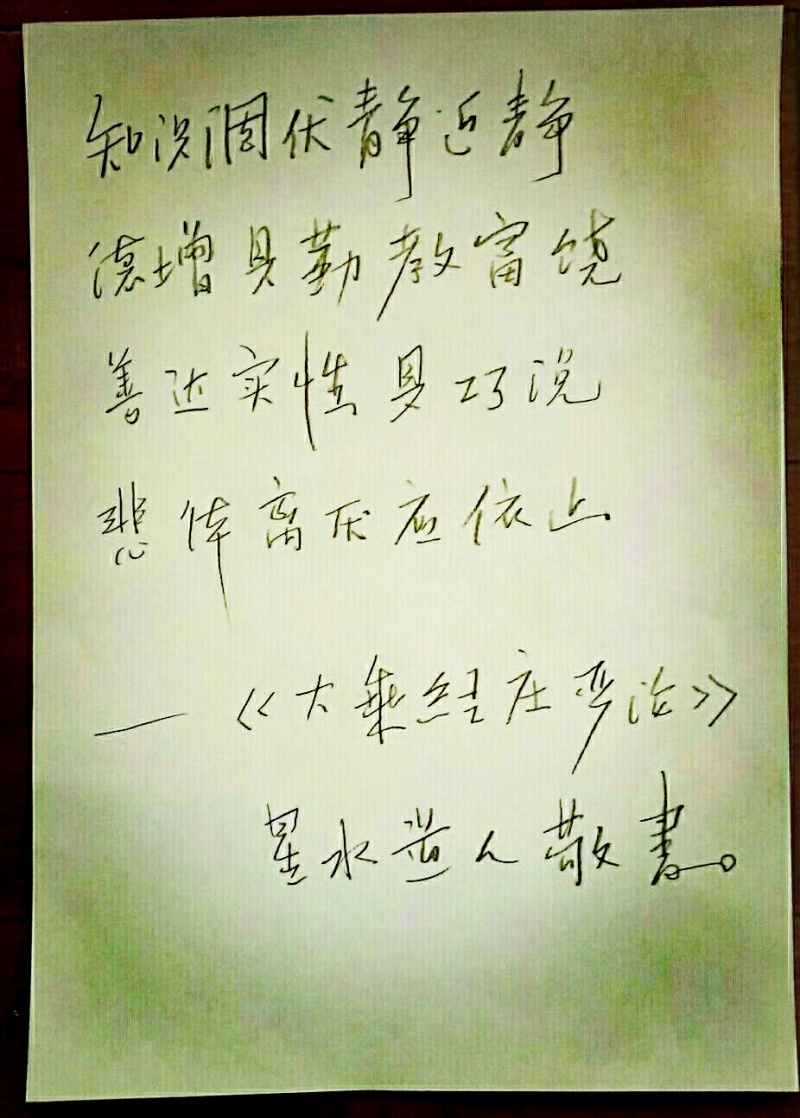 知识调伏静近静
德增具勤教富饶
善达实性具巧说
悲体离厌应依止
——《大乘经庄严论》
星水道人敬書。